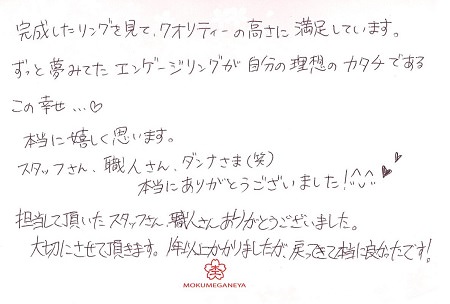 完成したリングを見て、クオリティーの高さに満足しています。
ずっと夢みてた エンゲージリングが 自分の理想のカタチである
この幸せ…♡
本当に嬉しく思います。
スタッフさん、職人さん、ダンナさま(笑)
本当にありがとうございました!^^♥♥
担当して頂いたスタッフさん、職人さんありがとうございました。
大切にさせて頂きます。1年以上かかりましたが、戻ってきて本当に良かったです!
MOKUMEGANEYA